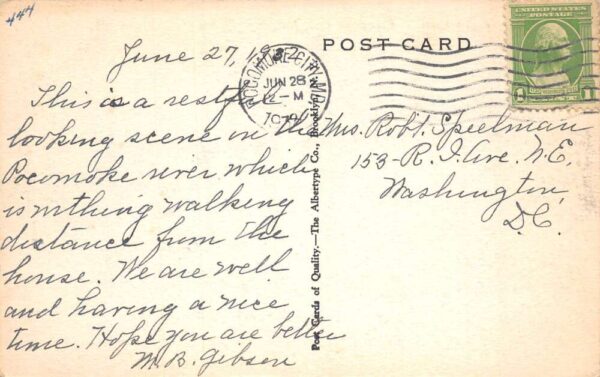 444
June 27, 1932
This is a restful
looking scene on the
Pocomoke river which
is withing walking
distance from the
house. We are well
and having a nice
time. Hope you are better
M. B. Gibson
POST CARD
POCOMOKE CITY, MD.
JUN 28
12 – M
Post Cards of Quality.—The Albertype Co., Brooklyn, N.Y.
UNITED STATES
POSTAGE
1
Mrs. Robt. Speelman
153 - R. I. Ave. N.E.
Washington,
D.C.